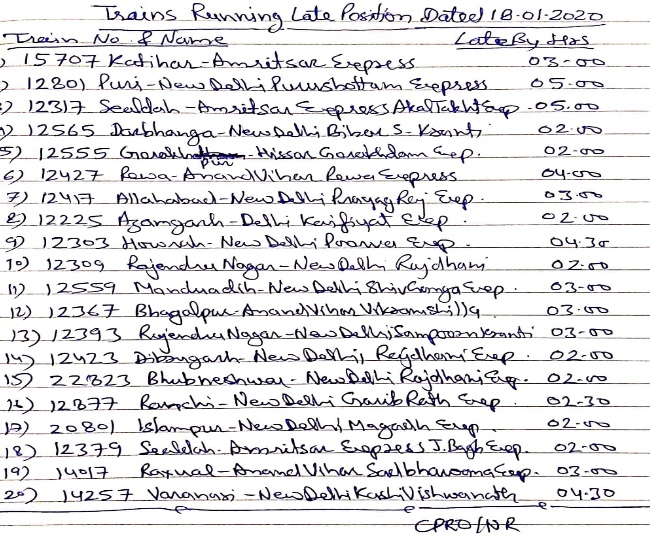 Trains Running Late Position Dated 18-01-2020
Train No. & Name Late By Hrs
) 15707 Katihar-Amritsar Express 03-00
) 12801 Puri-New Delhi Purushottam Express 05.00
) 12317 Sealdah-Amritsar Express Akal Takht Exp. 05.00
) 12565 Darbhanga-New Delhi Bihar S-Kranti 02.00
5) 12555 Gorakhpur-Hissar Gorakhdam Exp. 02-00
6) 12427 Rewa-Anand Vihar Rewa Express 04.00
7) 12417 Allahabad-New Delhi Prayag Raj Exp. 03.00
8) 12225 Azamgarh-Delhi Kaifiyat Exp. 02.00
9) 12303 Howrah-New Delhi Poorva Exp. 04.30
10) 12309 Rajendra Nagar-New Delhi Rajdhani 02.00
11) 12559 Manduadih-New Delhi Shiv Ganga Exp. 03-00
12) 12367 Bhagalpur-Anand Vihar Vikramshilla 03.00
13) 12393 Rajendra Nagar-New Delhi Sampoorn Kranti 03-00
14) 12423 Dibrugarh-New Delhi Rajdhani Exp. 02.00
15) 22823 Bhubneshwar-New Delhi Rajdhani Exp. 02-00
16) 12877 Ranchi-New Delhi Garib Rath Exp 02-30
17) 20801 Islampur-New Delhi Magadh Exp. 02-00
18) 12379 Sealdah-Amritsar Express J.Bagh Exp. 02-00
19) 14017 Raxual-Anand Vihar Sadbhavana Exp. 03-00
20) 14257 Varanasi-New Delhi Kashi Vishwanath 04.30
CPRO/NR